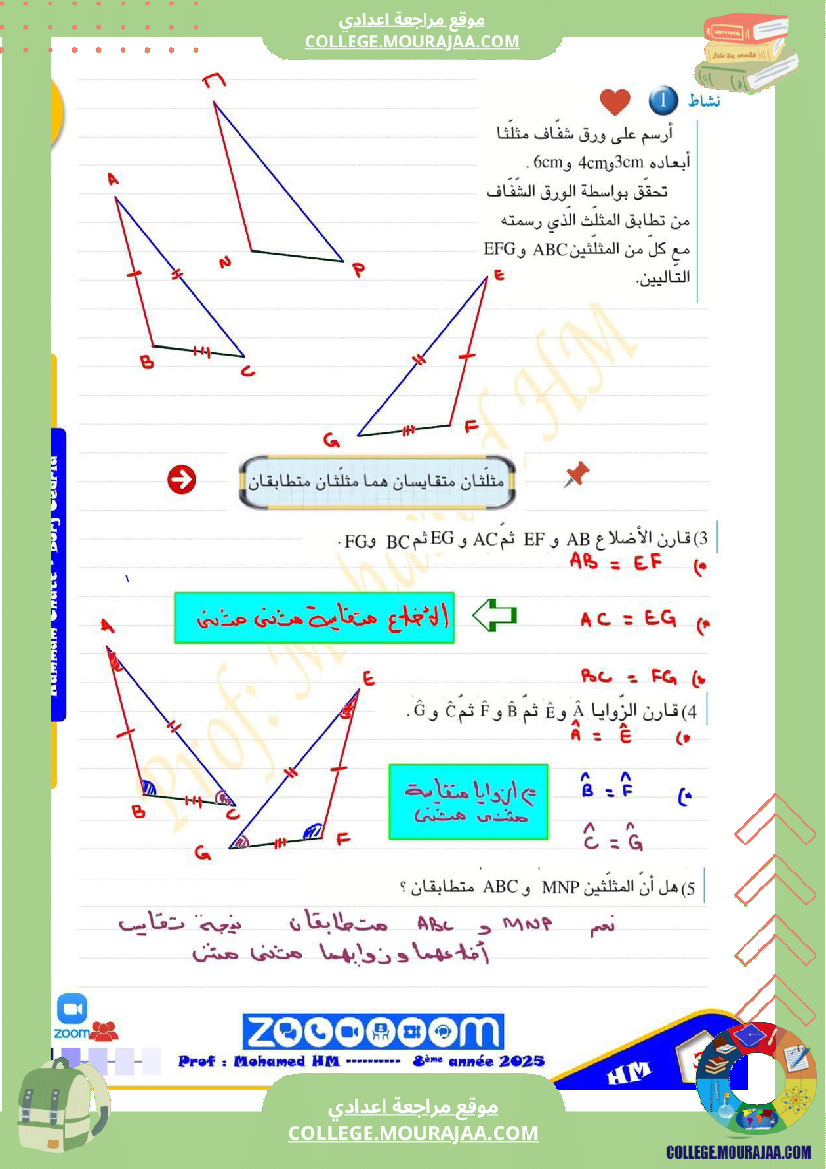 موقع مراجعة اعدادي
COLLEGE.MOURAJAA.COM
نشاط 1
أرسم على ورق شفّاف مثلّثا
أبعاده 3cm و4cm و6cm .
تحقّق بواسطة الورق الشّفّاف
من تطابق المثلّث الّذي رسمته
مع كلّ من المثلّثين ABC و EFG
التّاليين.
A
B
C
N
P
E
F
G
مثلّثان متقايسان هما مثلّثان متطابقان
3) قارن الأضلاع AB و EF ثمّ AC و EG ثم BC و FG .
AB = EF
الأضلاع متقايسة مثنى مثنى
AC = EG
BC = FG
4) قارن الزّوايا Â و Ê ثمّ B̂ و F̂ ثمّ Ĉ و Ĝ .
Â = Ê
B̂ = F̂
Ĉ = Ĝ
متقايسة
مثنى مثنى
A
B
C
E
F
G
5) هل أنّ المثلّثين MNP و ABC متطابقان ؟
نعم MNP و ABC متطابقان نتيجة تقايس
أضلاعهما وزواياهما مثنى مثنى
Prof: Mohamed HM
zoom
ZOOOOOOM
Prof : Mohamed HM ---------- 8ème année 2025
HM
موقع مراجعة اعدادي
COLLEGE.MOURAJAA.COM
COLLEGE.MOURAJAA.COM